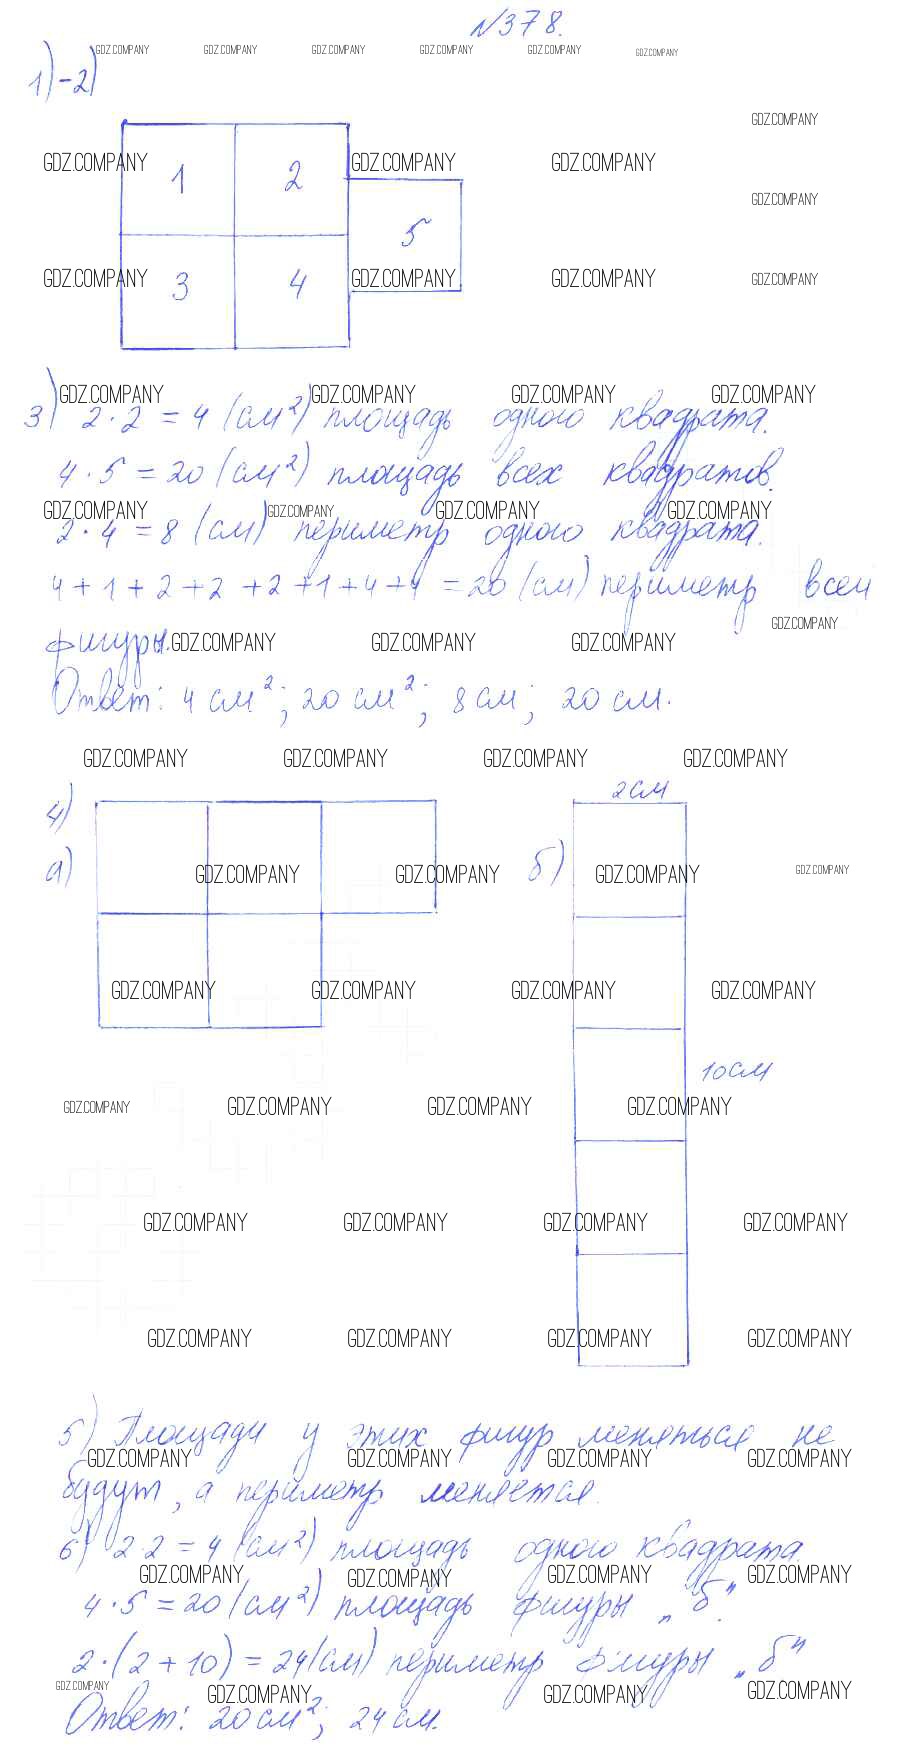 №378.
GDZ.COMPANY GDZ.COMPANY GDZ.COMPANY GDZ.COMPANY GDZ.COMPANY GDZ.COMPANY
1)-2)
GDZ.COMPANY
GDZ.COMPANY 1 GDZ.COMPANY 2 GDZ.COMPANY
GDZ.COMPANY
5
GDZ.COMPANY 3 4 GDZ.COMPANY GDZ.COMPANY GDZ.COMPANY
GDZ.COMPANY GDZ.COMPANY GDZ.COMPANY GDZ.COMPANY
3) 2·2=4 (см²) площадь одного квадрата.
4·5=20 (см²) площадь всех квадратов.
GDZ.COMPANY GDZ.COMPANY GDZ.COMPANY GDZ.COMPANY
2·4=8 (см) периметр одного квадрата.
4+1+2+2+2+1+4+4=20 (см) периметр всей
GDZ.COMPANY
фигуры. GDZ.COMPANY GDZ.COMPANY GDZ.COMPANY
Ответ: 4 см²; 20 см²; 8 см; 20 см.
GDZ.COMPANY GDZ.COMPANY GDZ.COMPANY GDZ.COMPANY
4) 2см
а) GDZ.COMPANY GDZ.COMPANY б) GDZ.COMPANY GDZ.COMPANY
GDZ.COMPANY GDZ.COMPANY GDZ.COMPANY GDZ.COMPANY
10см
GDZ.COMPANY GDZ.COMPANY GDZ.COMPANY GDZ.COMPANY
GDZ.COMPANY GDZ.COMPANY GDZ.COMPANY GDZ.COMPANY
GDZ.COMPANY GDZ.COMPANY GDZ.COMPANY GDZ.COMPANY
5) Площади у этих фигур меняться не
GDZ.COMPANY GDZ.COMPANY GDZ.COMPANY GDZ.COMPANY
будут, а периметр меняется.
6) 2·2=4 (см²) площадь одного квадрата.
GDZ.COMPANY GDZ.COMPANY GDZ.COMPANY GDZ.COMPANY
4·5=20 (см²) площадь фигуры „б".
2·(2+10)=24(см) периметр фигуры „б"
GDZ.COMPANY GDZ.COMPANY GDZ.COMPANY GDZ.COMPANY
Ответ: 20 см²; 24 см.